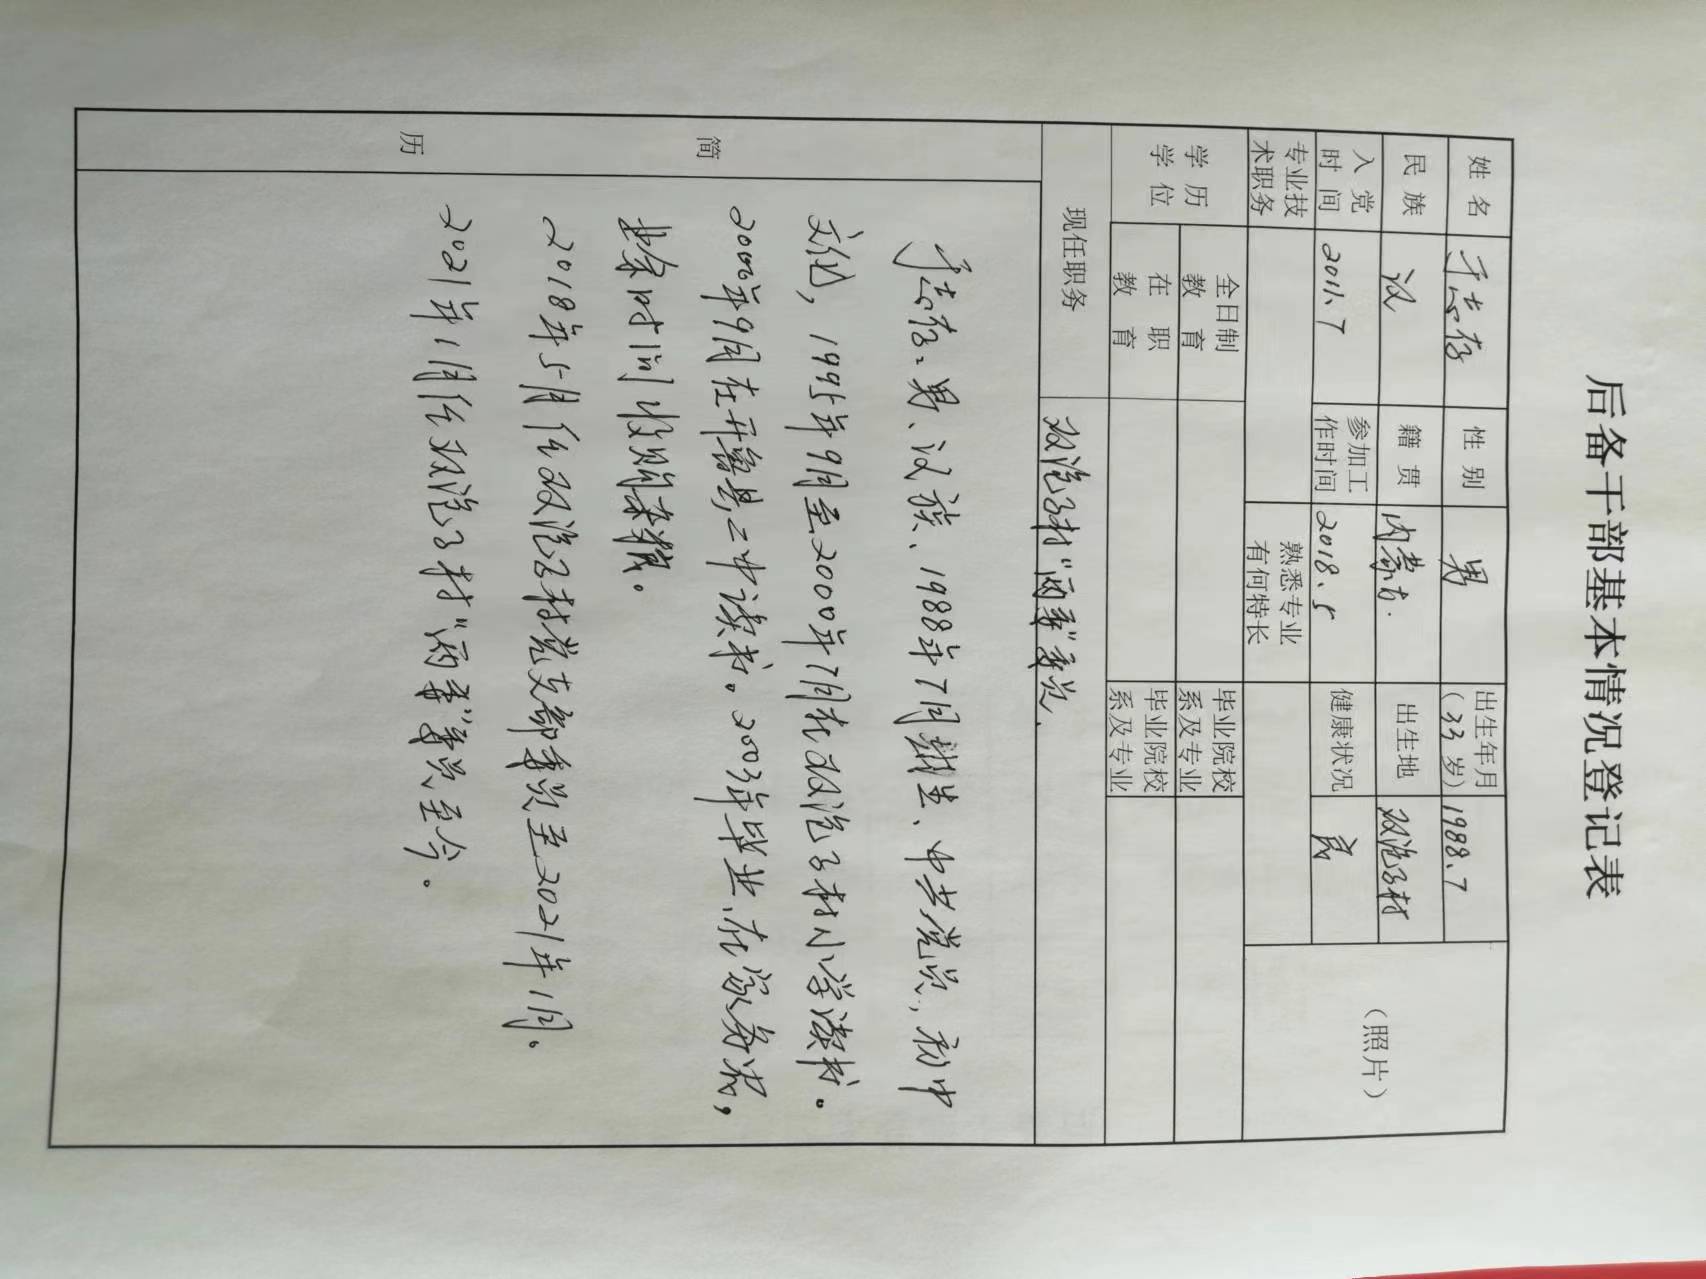 后备干部基本情况登记表
姓名 于志存 性别 男 出生年月(33岁) 1988.7 (照片)
民族 汉 籍贯 内蒙古. 出生地 双泡子村
入党时间 2011.7 参加工作时间 2018.5 健康状况 良
专业技术职务 熟悉专业有何特长
学历学位 全日制教育 毕业院校系及专业
在职教育 毕业院校系及专业
现任职务 双泡子村"两委"委员.
简历
于志存、男、汉族、1988年7月出生、中共党员,初中
文化,1995年9月至2000年7月在双泡子村小学读书。
2000年9月在开鲁县二中读书。2003年毕业,在家务农,
时间收购杂粮。
2018年5月任双泡子村党支部委员至2021年1月。
2021年1月任双泡子村"两委"委员至今。